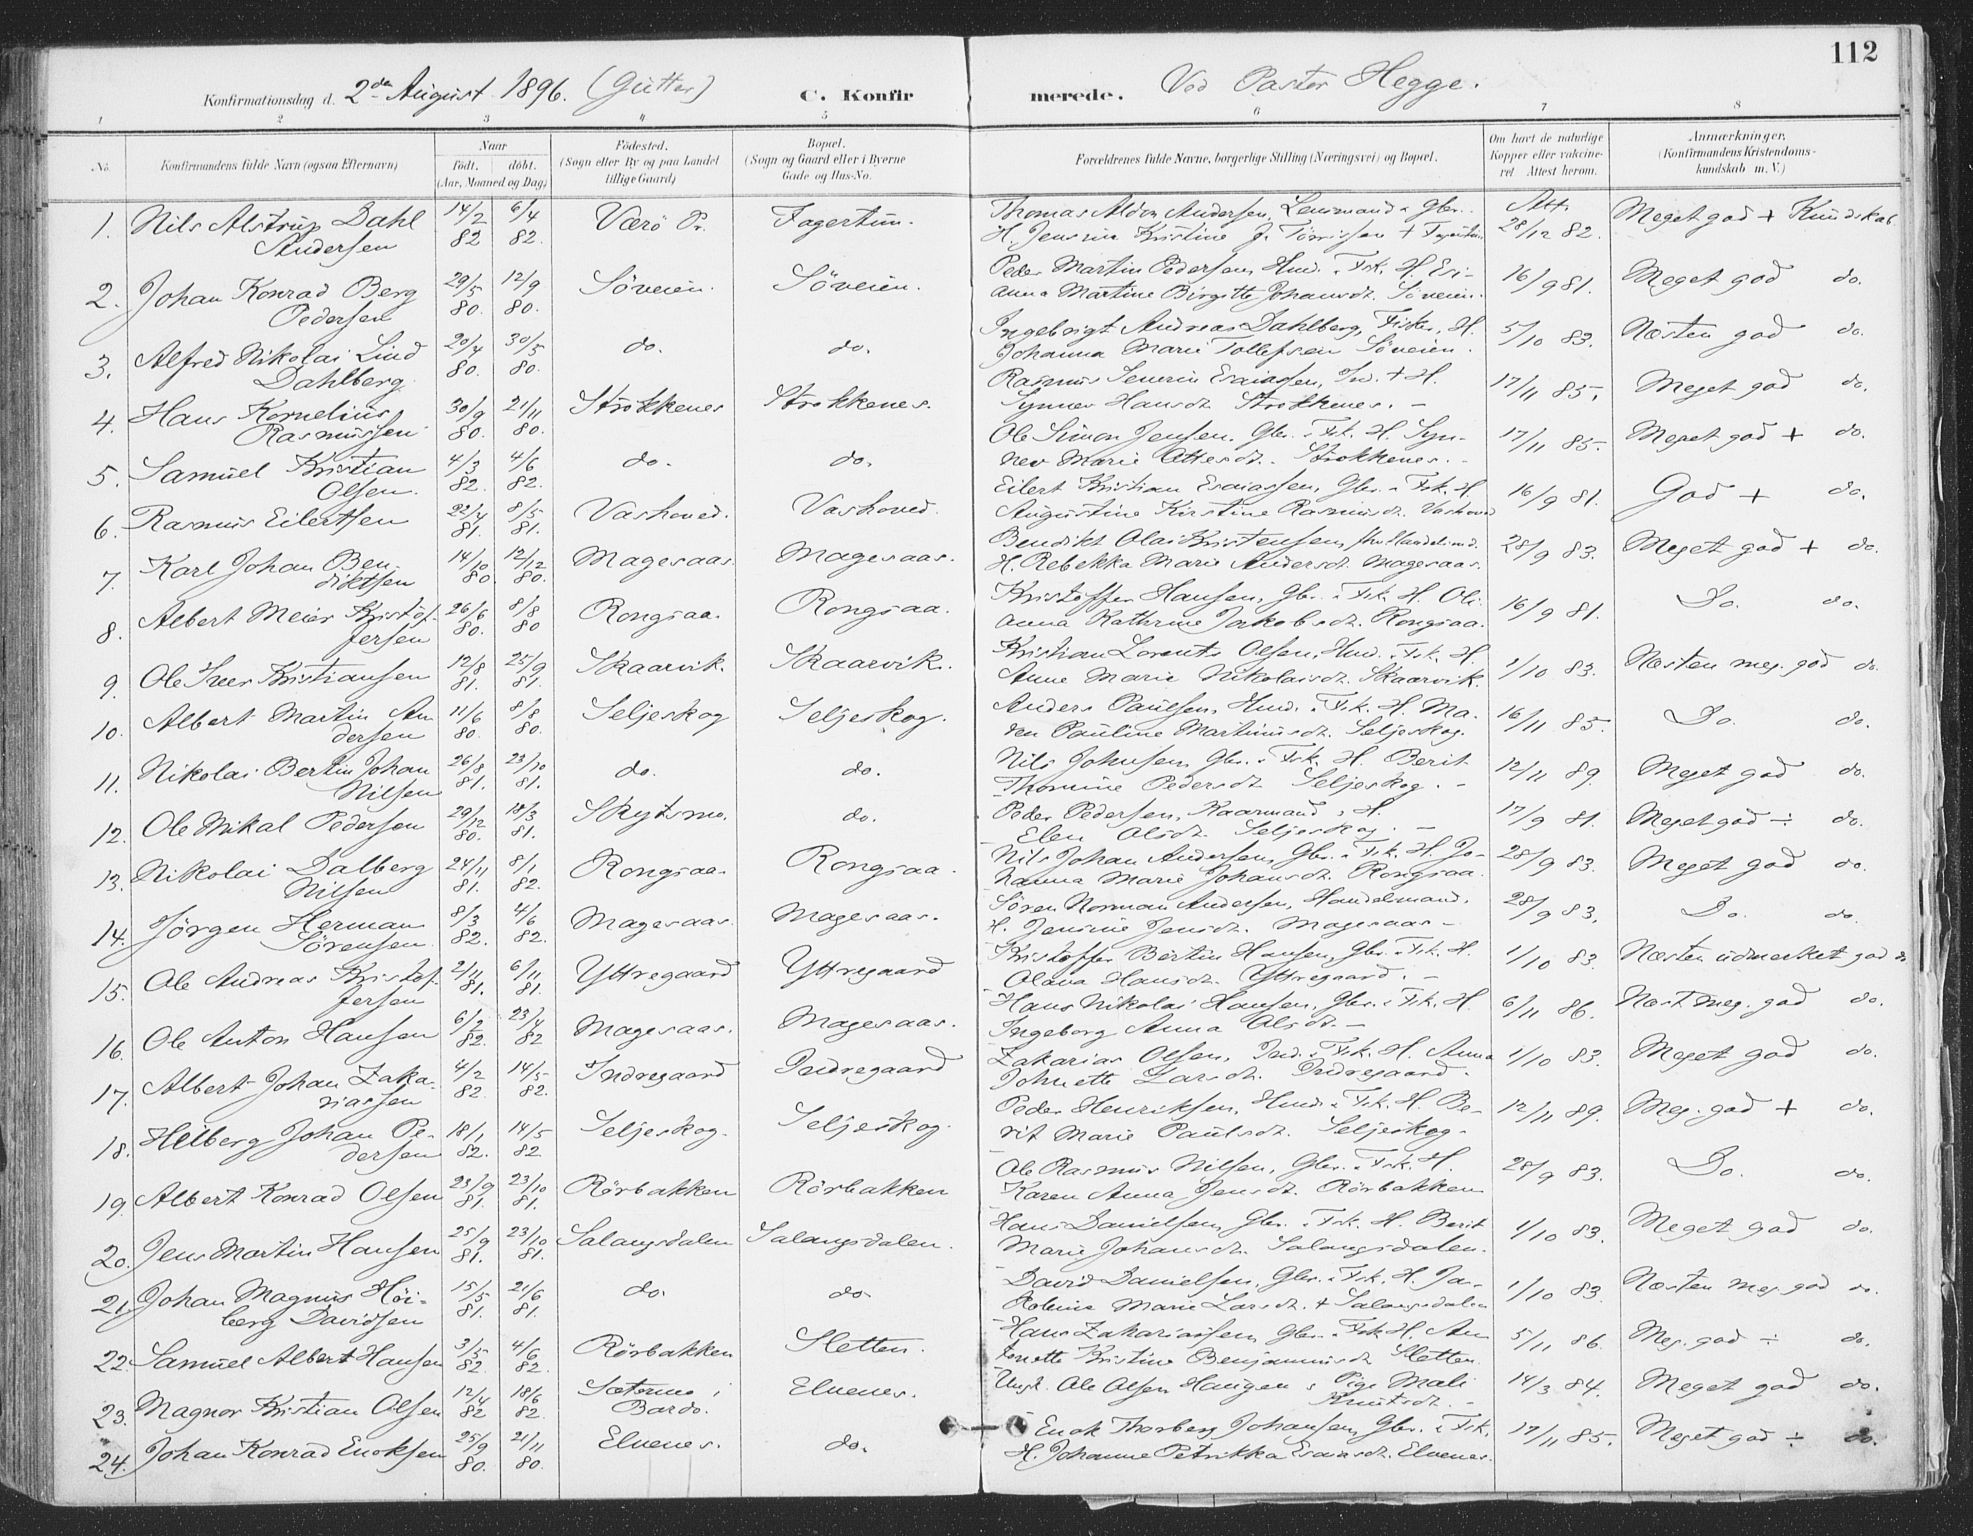 112
Konfirmationsdag d. 2den August 1896. (Gutter) C. Konfirmerede. Ved Pastor Hegge.
1 2 3 4 5 6 7 8
No. Konfirmandens fulde Navn (ogsaa Efternavn) Naar Født. døbt. (Aar, Maaned og Dag) Fødested. (Sogn eller By og paa Landet tillige Gaard) Bopæl. (Sogn og Gaard eller i Byerne Gade og Hus-No. Forældrenes fulde Navne, borgerlige Stilling (Næringsvei) og Bopæl. Om havt de naturlige Kopper eller vaccineret Attest herom. Anmærkninger. (Konfirmandens Kristendomskundskab m. V.)
1. Nils Alstrup Dahl Andersen 14/2 82 6/4 82. Værö Pr. Fagertun. Thomas Andersen, Lensmand Gbr. H. Jensine Kristine Att. 28/12 82. Meget god + Kundskab
2. Johan Konrad Berg Pedersen 29/5 80. 12/9 80. Söveien. Söveien. Peder Martin Pedersen, Hmd. i Fsk. H. Esianna Martine Birgitte Johansdt. Söveien. 16/9 81. Meget god do.
3. Alfred Nikolai Lind Dahlberg 20/4 80. 30/5 80. do. do. Ingebrigt Andreas Dahlberg, Fisker, H. Johanna Marie Tollefsen Söveien. 5/10 83. Næsten god do.
4. Hans Kornelius Rasmussen 30/9 80. 21/11 80. Strokkenes Strokkenes. Rasmus Severin Esaiassen, Ind. + H. Synnev Hansdt. Strokkenes. – 17/11 85. Meget god do.
5. Samuel Kristian Olsen. 4/3 82. 4/6 82. do. do. Ole Simon Jensen, Gbr. i Fsk. H. Synnev Marie Ottesdt. Strokkenes. – 17/11 85. Meget god + do.
6. Rasmus Eilertsen 22/4 81. 8/5 81. Vashoved. Vashoved. Eilert Kristian Esaiassen, Gbr. i Fsk. H. Augustine Kirstine Rasmusdt. Vashoved 16/9 81. God + do.
7. Karl Johan Bendiktsen 14/10 80. 12/12 80. Magesaas Magesaas. Bendikt Olai Kristensen, Handelsmd. H. Rebekka Marie Andersdt. Magesaas. 28/9 83. Meget god + do.
8. Albert Meier Kristoffersen 26/6 80. 8/8 80 Rongsaa. Rongsaa. Kristoffer Hansen, Gbr. i Fsk. H. Olianna Kathrine Jakobsdt. Rongsaa. 16/9 81. Do. do.
9. Ole Iver Kristiansen 12/8 81. 25/9 81. Skaarvik. Skaarvik. Kristian Lorents Olsen, Hmd. i Fsk. H. Anne Marie Nikolaisdt. Skaarvik. 1/10 83. Næsten meg. god do.
10. Albert Martin Andersen 11/6 80. 8/8 80. Seljeskog Seljeskog. Anders Paulsen, Hmd. i Fsk. H. Maren Pauline Martinusdt. Seljeskog. 16/11 85. Do. do.
11. Nikolai Bertin Johan Nilsen 26/8 81. 23/10 81. do. do. Nils Johnsen, Gbr. i Fsk. H. Berit Thomine Pedersdt. Seljeskog. – 12/11 89. Meget god do.
12. Ole Mikal Pedersen 29/12 80. 18/3 81. Skytsmo. do. Peder Pedersen, Kaarmand, H. Elen Olsdt. Seljeskog. – 17/9 81. Meget god ÷ do.
13. Nikolai Dalberg Nilsen 24/11 81. 8/1 82. Rongsaa. Rongsaa. Nils Johan Andersen, Gbr. i Fsk. H. Johanna Marie Johansdt. Rongsaa. 28/9 83. Meget god do.
14. Jörgen Herman Sörensen. 8/3 82. 4/6 82. Magesaas Magesaas. Sören Norman Andersen, Handelsmand. H. Jensine Jensdt. Magesaas – 28/9 83. Do. do.
15. Ole Andreas Kristoffersen 2/11 81. 6/11 81. Yttregaard Yttregaard Kristoffer Bertin Hansen, Gbr. i Fsk. H. Olava Hansdt. Yttregaard. – 1/10 83. Næsten udmerket god do
16. Ole Anton Hansen 6/2 82. 23/4 82 Magesaas. Magesaas. Hans Nikolai Hansen, Gbr. i Fsk. H. Ingeborg Anna Olsdt. – 6/11 86. Næst meg. god do.
17. Albert Johan Zakariassen 4/2 82 14/5 82. Indregaard Indregaard Zakarias Olsen, Ind. i Fsk. H. Anna Johnette Larsdt. Indregaard. 1/10 83. Meget god do.
18. Helberg Johan Pedersen 18/1 82. 14/5 82 Seljeskog. Seljeskog. Peder Henriksen, Hmd. i Fsk. H. Berit Marie Paulsdt. Seljeskog. 12/11 89. Meg. god + do.
19. Albert Konrad Olsen 23/9 81. 23/10 81. Rörbakken Rörbakken Ole Rasmus Nilsen, Gbr. i Fsk. H. Karen Anna Jensdt. Rörbakken 28/9 83. Do. do.
20. Jens Martin Hansen 25/9 81. 23/10 81. Salangsdalen Salangsdalen. Hans Danielsen, Gbr. i Fsk. H. Berit Marie Johansdt. Salangsdalen. 1/10 83. Meget god do.
21. Johan Magnus Höiberg Davidsen 15/5 81. 21/6 81. do. do David Danielsen, Gbr. i Fsk. H. Jakobine Marie Larsdt. + Salangsdalen 1/10 83. Næsten meg. god do.
22. Samuel Albert Hansen 3/5 82. 4/6 82. Rörbakken Sletten. Hans Zakariassen, Gbr. i Fsk. H. Antonette Kristine Benjaminsdt. Sletten. 5/11 86. Meg. god ÷ do.
23. Magnor Kristian Olsen 12/4 82 18/6 82. Sætermo i Bardo. Elvenes. Ungk. Ole Olsen Haugen & Pige Mali Knutsdt. – 14/3 84. Meget god do.
24. Johan Konrad Enoksen 25/9 80. 21/11 80. Elvenes. do. Enok Thorberg Johansen, Gbr. i Fsk. H. Johanne Petrikka Esaiasdt. Elvenes. 17/11 85. Meget god ÷ do.